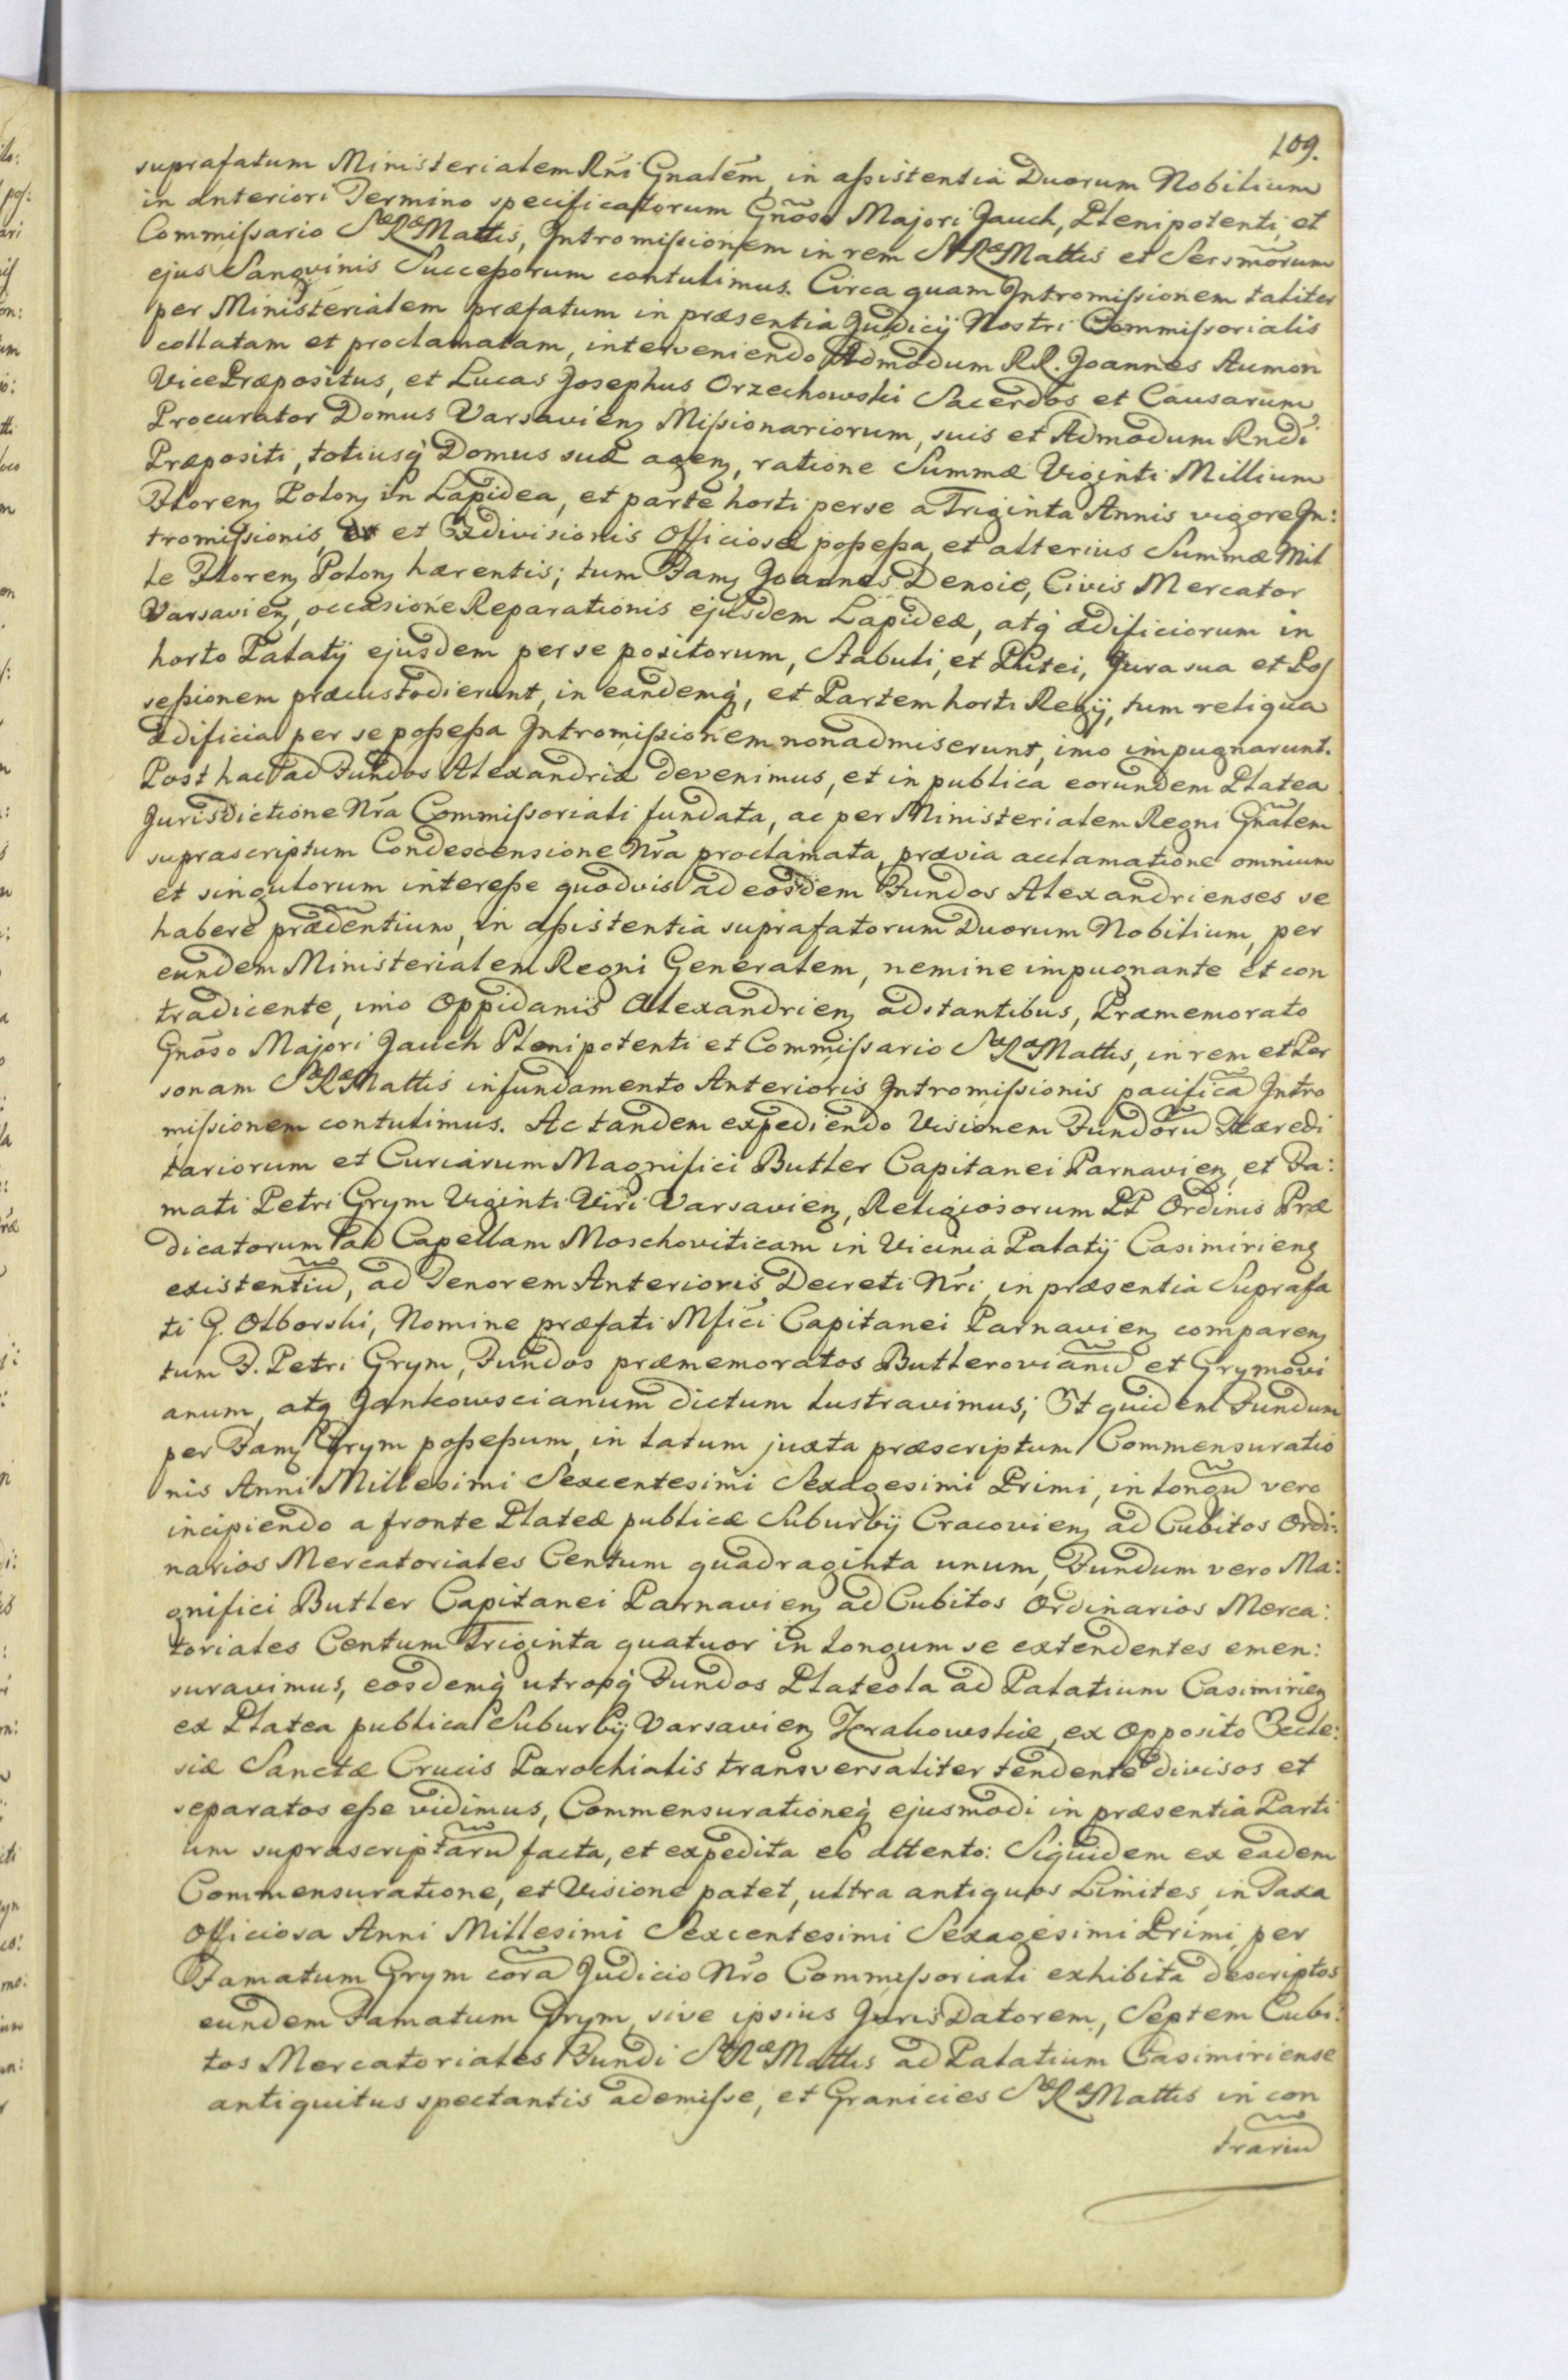 109.
suprafatum Ministerialem Rñi Gnalẽm, in aßistentia Duorum Nobilium
in anteriori Termino specificatorum Gñoso Majori Jauch, Plenipotenti, et
Commißario Sæ Ræ Mattis, Intromißionem in rem Sæ Ræ Mattis et Sersmõrum
ejus Sangvinis Succeßorum contulimus. Circa quam Intromißionem taliter
per Ministerialem præfatum in præsentia Judicij Nostri Commißorialis
collatam et proclamatam, interveniendo, Admodum RR. Joannes Aumon
VicePræpositus, et Lucas Josephus Orzechowski Sacerdos et Causarum
Procurator Domus Varsavien̄ Mißionariorum, suis et Admodum Rndi
Præpositi, totiusq̀ Domus suæ agen̄, ratione Summæ Viginti Millium
Floren̄ Polon̄ in Lapidea, et parte horti per se a Triginta Annis vigore In:
tromißionis, et Exdivisionis Officiosæ poßeßa, et alterius Summæ Mil
le Floren̄ Polon̄ hærentis; tum Fam̄ Joannes Denoie, Civis Mercator
Varsavien̄, occasione Reparationis ejusdem Lapideæ, atq̀ ædificiorum in
horto Palatij ejusdem per se positorum, Stabuli, et Putei, Jura sua et Pos
seßionem præcustodierunt, in eandemq̀, et Partem horti Regij, tum reliqua
ædificia per se poßeßa Intromißionem non admiserunt, imo impugnarunt.
Post hac ad Fundos Alexandriæ devenimus, et in publica eorundem Platea
Jurisdictione Nrã Commißoriali fundata, ac per Ministerialem Regni Gñalem
suprascriptum Condescensione Nrã proclamata, prævia acclamatione omnium
et singulorum intereße quodvis ad eosdem Fundos Alexandrienses se
habere prædẽntium, in aßistentia suprafatorum Duorum Nobilium, per
eundem Ministerialem Regni Generalem, nemine impugnante et con
tradicente, imo Oppidanis Alexandrien̄ adstantibus, Præmemorato
Gnõso Majori Jauch Plenipotenti et Commißario Sæ Ræ Mattis, in rem et Per
sonam Sæ Ræ Mattis in fundamento Anterioris Intromißionis pacificã Intro
mißionem contulimus. Ac tandem expediendo Visionem Fundorũ Hæredi
tariorum et Curiarum Magnifici Butler Capitanei Parnavien̄, et Fa:
mati Petri Grym Viginti Viri Varsavien̄, Religiosorum PP Ordinis Præ
dicatorum ad Capellam Moschoviticam in Vicinia Palatij Casimirien̄
existentiũ, ad Tenorem Anterioris Decreti Nri, in præsentia Suprafa
ti G. Olborski, Nomine præfati Mfici Capitanei Parnavien̄ comparen̄
tum F. Petri Grym, Fundos præmemoratos Butlerovianũ et Grymovi
anum, atq̀ Jankowscianum dictum lustravimus; Et quidem Fundum
per Fam̄ Grym poßeßum, in latum juxta præscriptum Commensuratio
nis Anni Millesimi Sexcentesimi Sexagesimi Primi, in longũ vero
incipiendo a fronte Plateæ publicæ Suburbij Cracovien̄ ad Cubitos Ordi:
narios Mercatoriales Centum quadraginta unum, Fundum vero Ma:
gnifici Butler Capitanei Parnavien̄ ad Cubitos Ordinarios Merca:
toriales Centum Triginta quatuor in longum se extendentes emen:
suravimus, eosdemq̀ utrosq̀ Fundos Plateola ad Palatium Casimirien̄
ex Platea publica Suburbij Varsavien̄ Krakowskie, ex Opposito Eccle:
siæ Sanctæ Crucis Parochialis transversaliter tendente divisos et
separatos eße vidimus, Commensurationeq̀ ejusmodi in præsentia Parti
um suprascriptarũ facta, et expedita eo attento: Siquidem ex eadem
Commensuratione, et Visione patet, ultra antiquos Limites, in Taxa
Officiosa Anni Millesimi Sexcentesimi Sexagesimi Primi, per
Famatum Grym corã Judicio Nrõ Commißoriali exhibita descriptos
eundem Famatum Grym, sive ipsius JurisDatorem, Septem Cubi:
tos Mercatoriales Fundi Sæ Ræ Mattis ad Palatium Casimiriense
antiquitus spectantis ademiße, et Granicies Sæ Ræ Mattis in con
trariũ